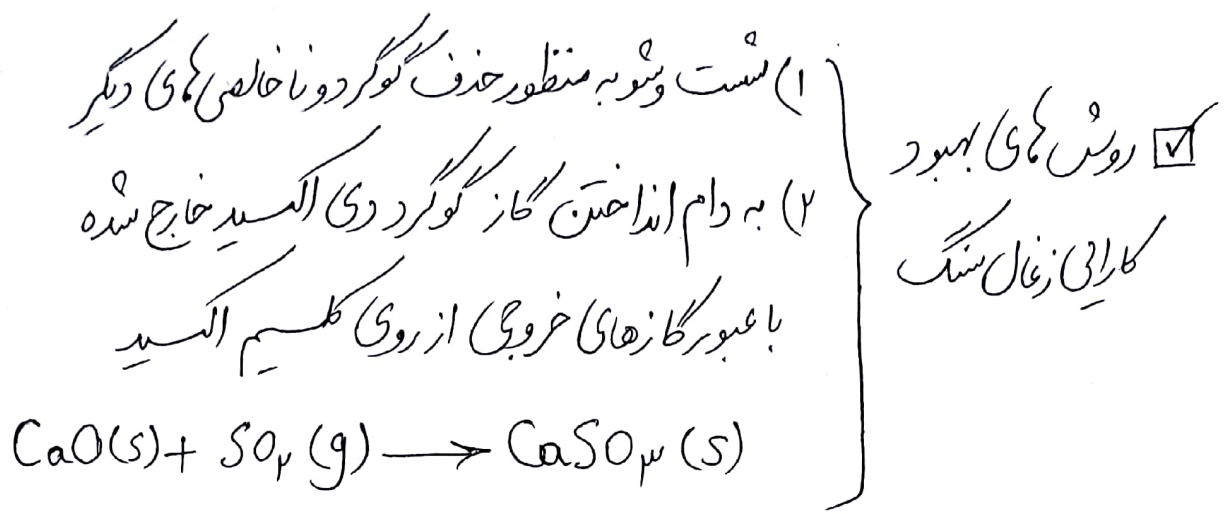 ☑ روش های بهبود
کارایی زغال سنگ
۱) شست و شو به منظور حذف گوگرد و ناخالصی های دیگر
۲) به دام انداختن گاز گوگرد دی اکسید خارج شده
با عبور گازهای خروجی از روی کلسیم اکسید
CaO(s) + SO₂(g) → CaSO₃(s)